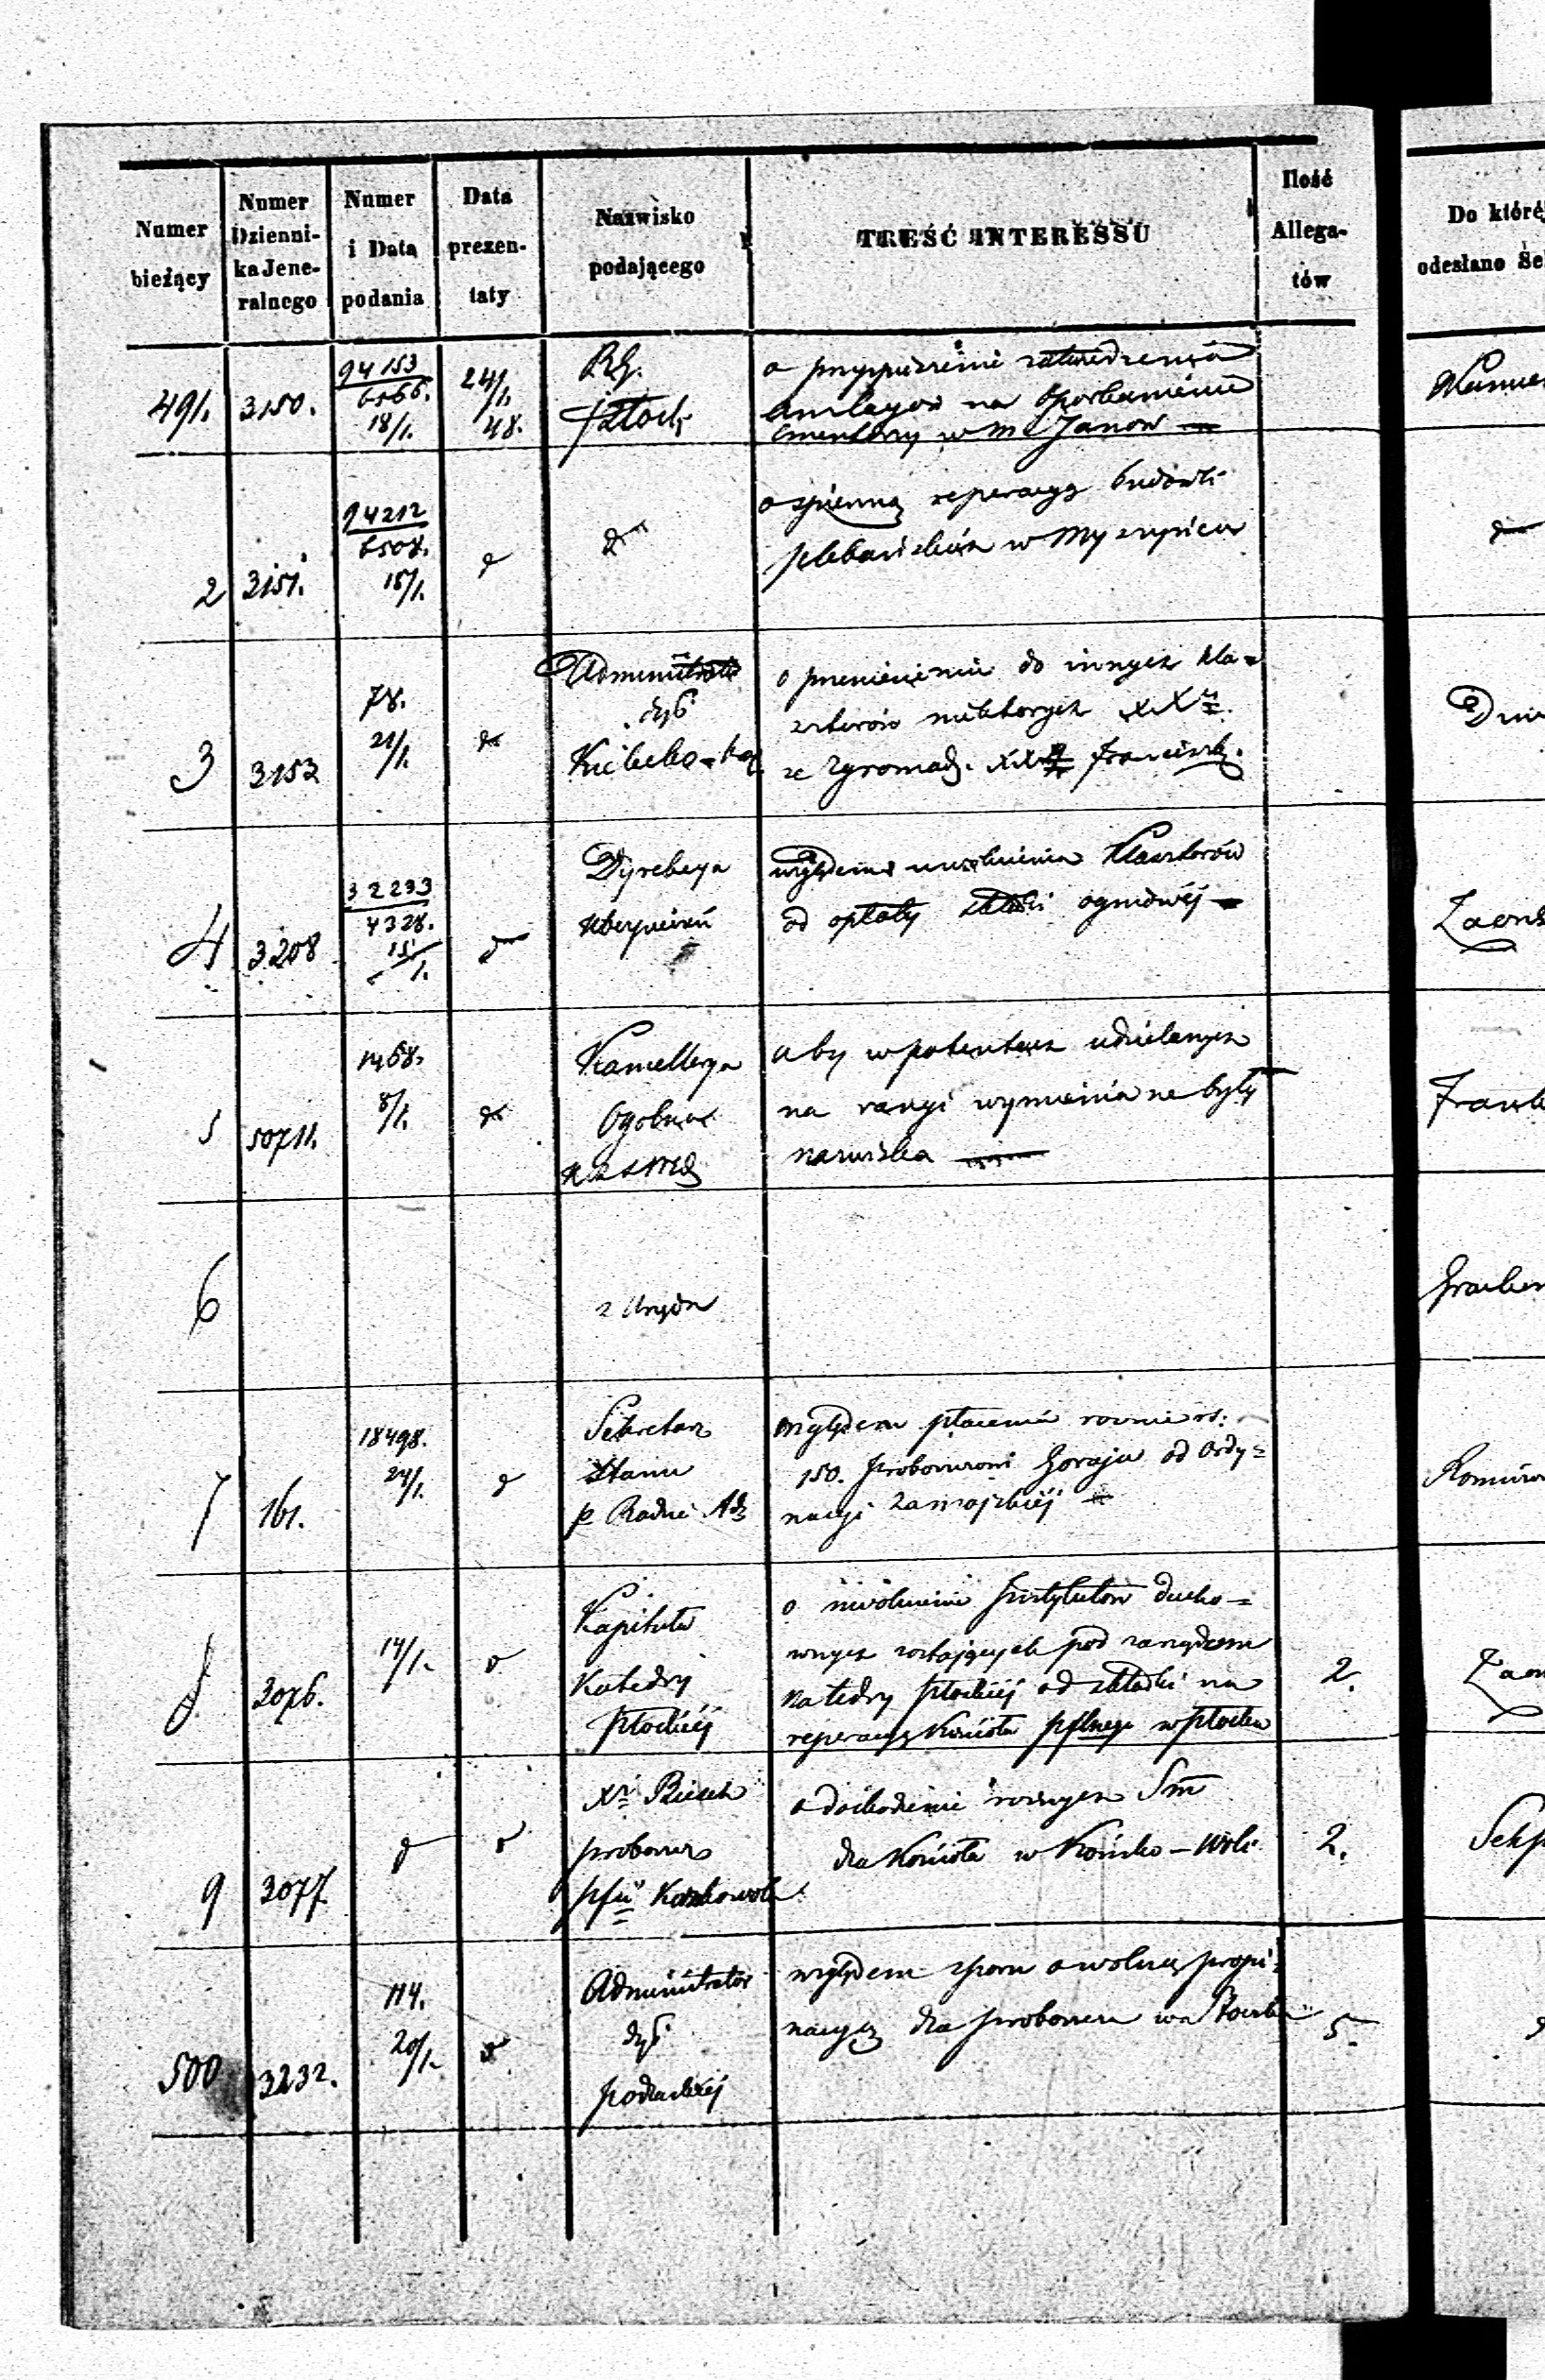 Numer bieżący
Numer Dzienni-ka Jene-ralnego
Numer i Data podania
Data prezen-taty
Nazwisko podającego
TREŚĆ INTERESSU
Ilość Allega-tów
Do które
odesłano Se
491. 3150. 94153 18/1. 24/1. 48. RG. Płock
o przyspieszenie zatwierdzenia
na oparkanienie
cmentarzy w m. Janow
2 3151. 94212 6508. 15/1. d
o spieszną reperacyą budowli
plebańskich w Myszyńcu
3 3153 78. 21/1. d Administrator
dyć
Kielecko-
o przeniesienie do innych kla=
sztorów niektorych XX
ze zgromadz. XX Francisk.
4 3208 32233 4328. 15/1. d Dyrekcya
Ubezpieczeń
względem uwolnienia Klasztorów
od opłaty składki ogniowéj
5 50711. 1468. 8/1. d Kancellarya
aby w patentach udzielanych
na rangi wymieniane były
nazwiska
6 z Urzędu
7 161. 18498. 24/1. d Sekretarz
Stanu
p Radzie Ad
względem płacenia rocznie rs.
150. proboszczowi Goraju od Ordy=
nacyi Zamojskiéj
8 3076. 14/1. d Kapituła
Katedry
Płockiéj
o uwolnienie Instytutów ducho=
wnych zostających pod zarządem
Katedry Płockiéj od składki na
reperacyą Kościoła pflnego w Płocku
2.
9 3077 d d X Bieach
proboszcz
o dochodzenie roznych Sm
dla Kościoła w Końsko-Woli
2.
500 3232. 114. 20/1. d Administrator
dyć
podlaskiéj
względem sporu o wolną propi=
nacyą dla proboszcza w
5.